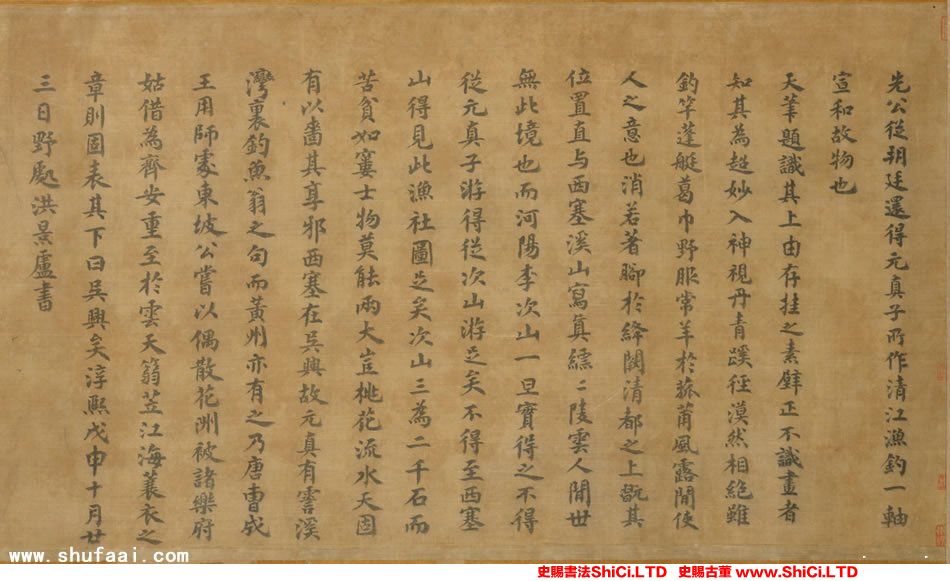 先公從朔廷還得元真子所作清江漁釣一軸
宣和故物也
天筆題識其上由存挂之素壁正不識畫者
知其為超妙入神視丹青蹊徑漠然相絕雖
釣竿蓬艇葛巾野服常羊於菰莆風露間使
人之意也消若著腳於絳闕清都之上翫其
位置直与西塞溪山寫真縹二陵雲人間世
無此境也而河陽李次山一旦實得之不得
從元真子游得從次山游足矣不得至西塞
山得見此漁社圖足矣次山三為二千石而
苦貧如寠士物莫能兩大豈桃花流水天固
有以嗇其享邪西塞在吳興故元真有霅溪
灣裏釣魚翁之句而黃州亦有之乃唐曹成
王用師處東坡公嘗以偶散花洲被諸樂府
姑借為齊安重至於雲天蒻笠江海蓑衣之
章則固表其下曰吳興矣淳熙戊申十月廿
三日野處洪景盧書
www.shufaai.com
史賜書法ShiCi.LTD 史賜古董 www.ShiCi.LTD